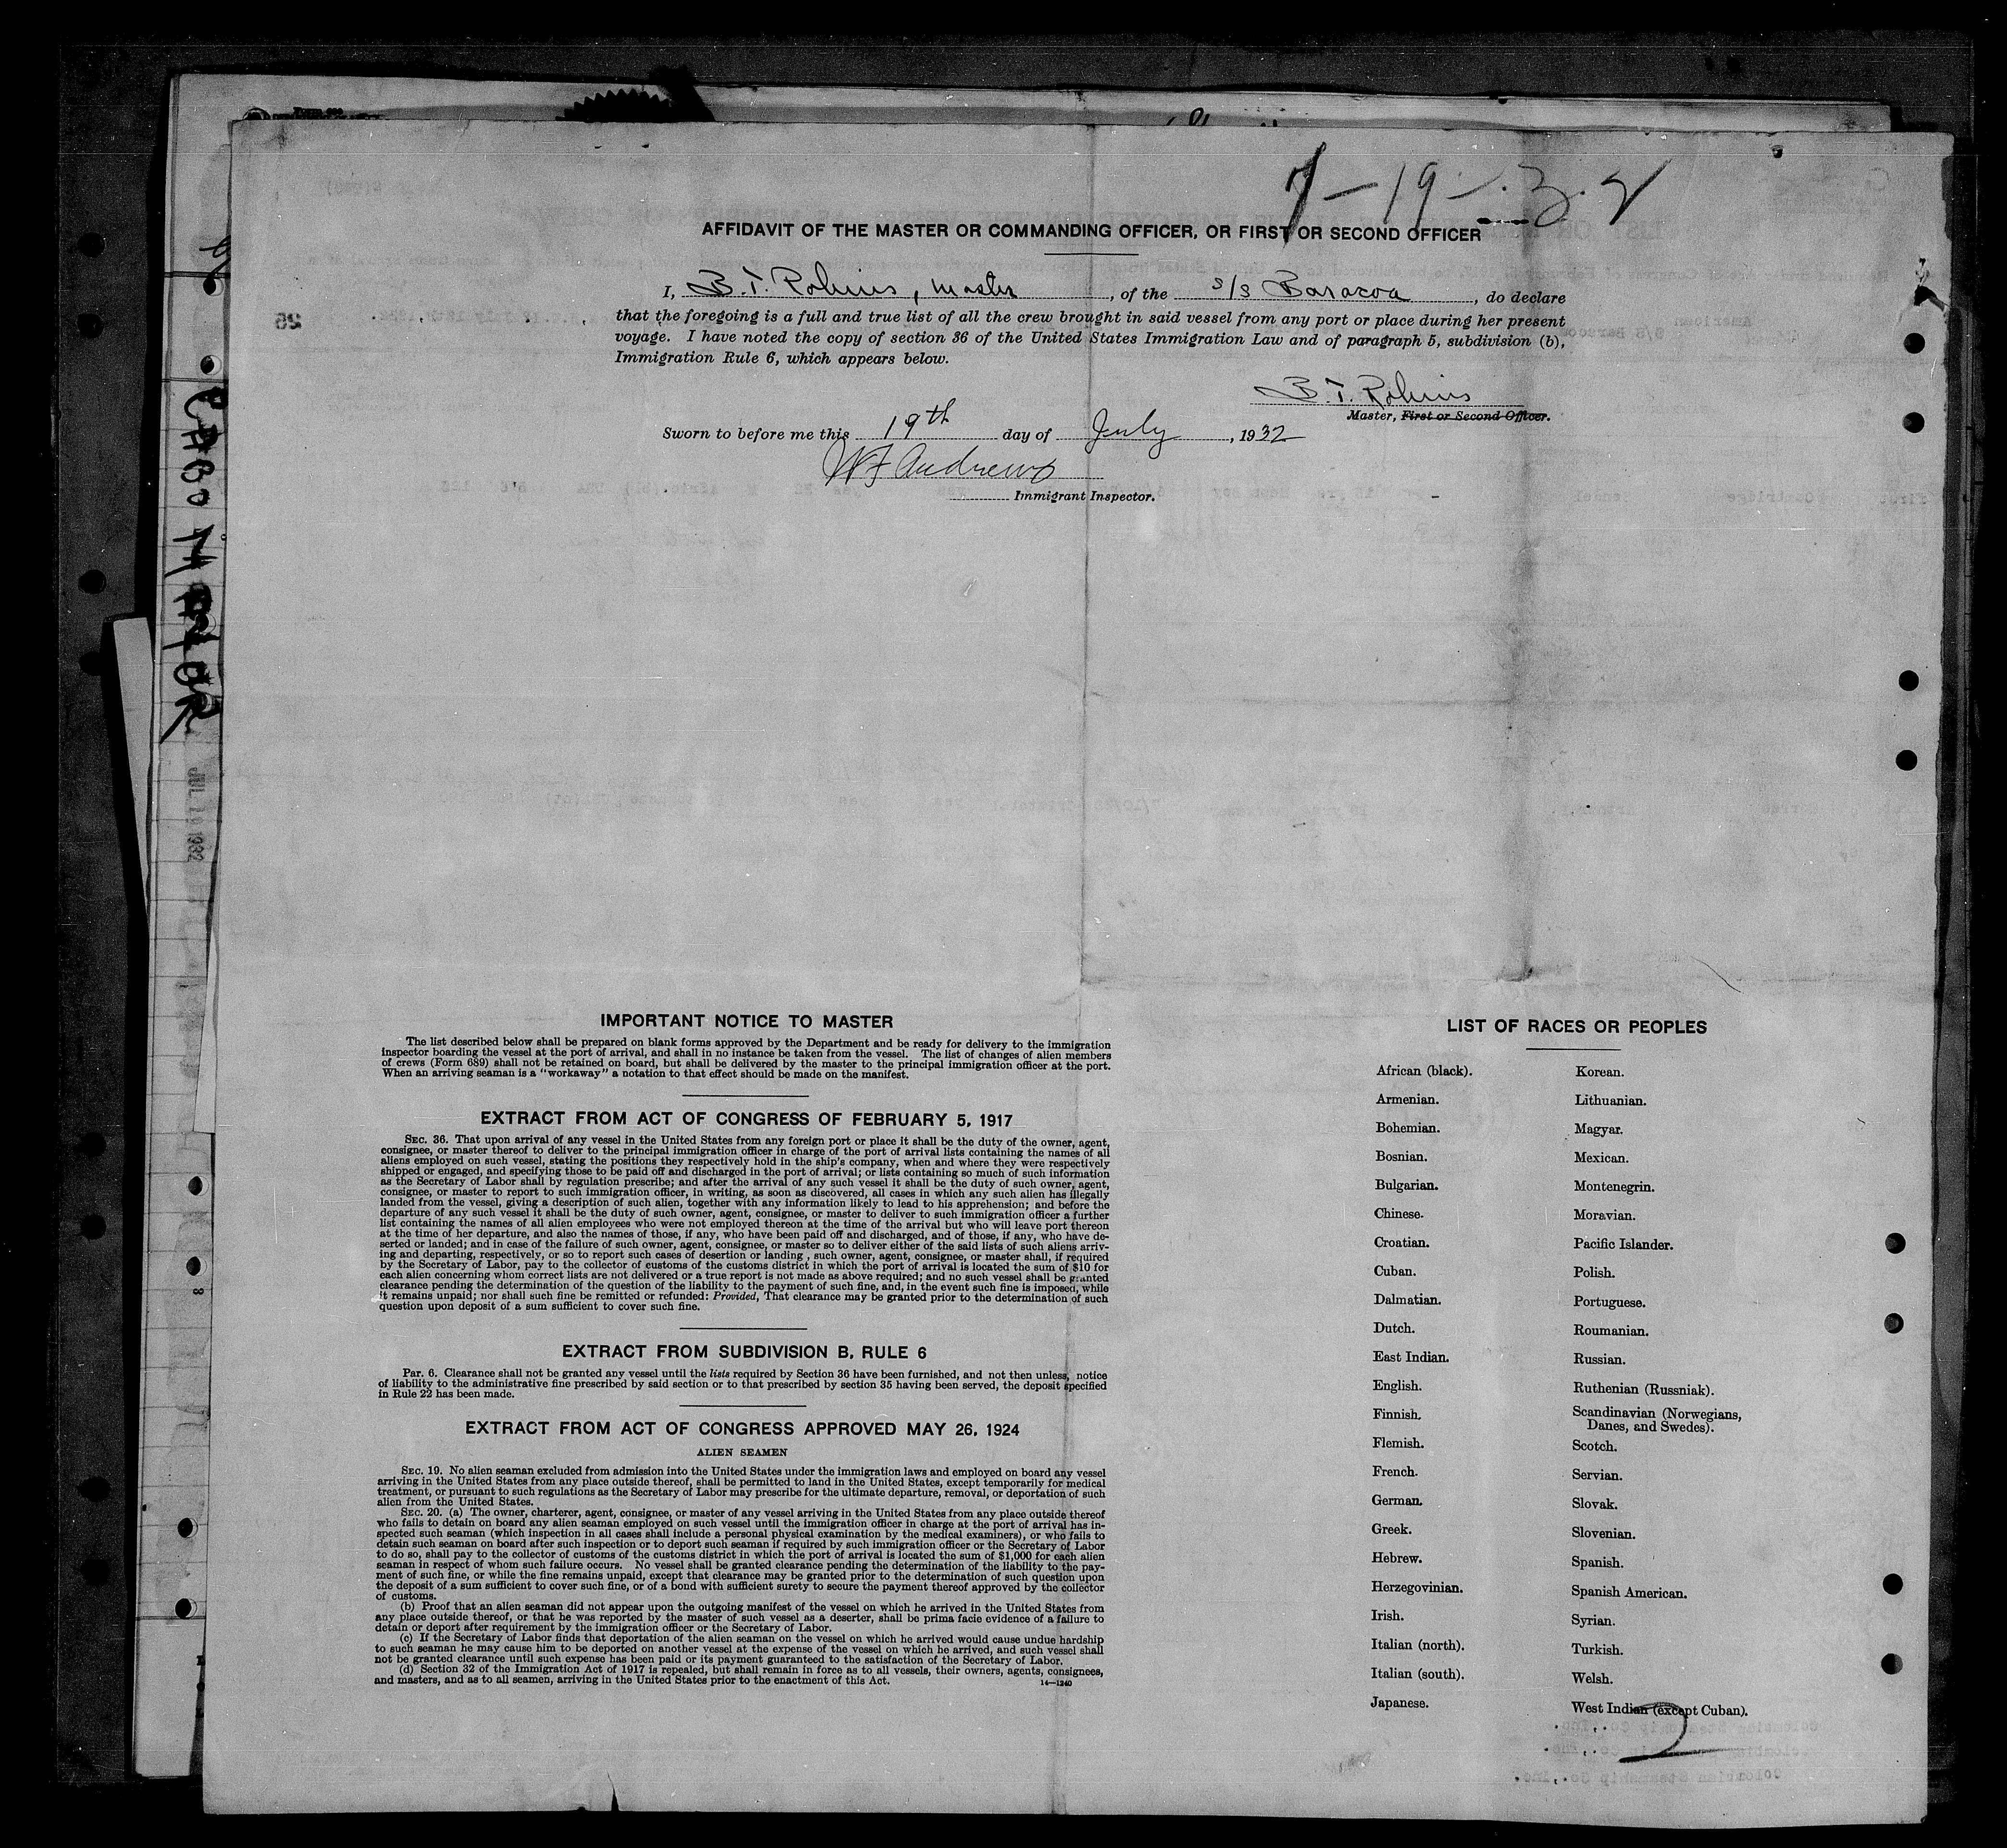 7-19-32
AFFIDAVIT OF THE MASTER OR COMMANDING OFFICER, OR FIRST OR SECOND OFFICER
I, B. T. Robins, master, of the s/s Baracoa, do declare
that the foregoing is a full and true list of all the crew brought in said vessel from any port or place during her present
voyage. I have noted the copy of section 36 of the United States Immigration Law and of paragraph 5, subdivision (b),
Immigration Rule 6, which appears below.
B. T. Robins
Master, First or Second Officer.
Sworn to before me this 19th day of July, 1932
W F Andrews
Immigrant Inspector.
JUL 19 1932
IMPORTANT NOTICE TO MASTER
The list described below shall be prepared on blank forms approved by the Department and be ready for delivery to the immigration
inspector boarding the vessel at the port of arrival, and shall in no instance be taken from the vessel. The list of changes of alien members
of crews (Form 689) shall not be retained on board, but shall be delivered by the master to the principal immigration officer at the port.
When an arriving seaman is a "workaway" a notation to that effect should be made on the manifest.
EXTRACT FROM ACT OF CONGRESS OF FEBRUARY 5, 1917
SEC. 36. That upon arrival of any vessel in the United States from any foreign port or place it shall be the duty of the owner, agent,
consignee, or master thereof to deliver to the principal immigration officer in charge of the port of arrival lists containing the names of all
aliens employed on such vessel, stating the positions they respectively hold in the ship's company, when and where they were respectively
shipped or engaged, and specifying those to be paid off and discharged in the port of arrival; or lists containing so much of such information
as the Secretary of Labor shall by regulation prescribe; and after the arrival of any such vessel it shall be the duty of such owner, agent,
consignee, or master to report to such immigration officer, in writing, as soon as discovered, all cases in which any such alien has illegally
landed from the vessel, giving a description of such alien, together with any information likely to lead to his apprehension; and before the
departure of any such vessel it shall be the duty of such owner, agent, consignee, or master to deliver to such immigration officer a further
list containing the names of all alien employees who were not employed thereon at the time of the arrival but who will leave port thereon
at the time of her departure, and also the names of those, if any, who have been paid off and discharged, and of those, if any, who have de-
serted or landed; and in case of the failure of such owner, agent, consignee, or master so to deliver either of the said lists of such aliens arriv-
ing and departing, respectively, or so to report such cases of desertion or landing , such owner, agent, consignee, or master shall, if required
by the Secretary of Labor, pay to the collector of customs of the customs district in which the port of arrival is located the sum of $10 for
each alien concerning whom correct lists are not delivered or a true report is not made as above required; and no such vessel shall be granted
clearance pending the determination of the question of the liability to the payment of such fine, and, in the event such fine is imposed, while
it remains unpaid; nor shall such fine be remitted or refunded: Provided, That clearance may be granted prior to the determination of such
question upon deposit of a sum sufficient to cover such fine.
EXTRACT FROM SUBDIVISION B, RULE 6
Par. 6. Clearance shall not be granted any vessel until the lists required by Section 36 have been furnished, and not then unless, notice
of liability to the administrative fine prescribed by said section or to that prescribed by section 35 having been served, the deposit specified
in Rule 22 has been made.
EXTRACT FROM ACT OF CONGRESS APPROVED MAY 26, 1924
ALIEN SEAMEN
SEC. 19. No alien seaman excluded from admission into the United States under the immigration laws and employed on board any vessel
arriving in the United States from any place outside thereof, shall be permitted to land in the United States, except temporarily for medical
treatment, or pursuant to such regulations as the Secretary of Labor may prescribe for the ultimate departure, removal, or deportation of such
alien from the United States.
SEC. 20. (a) The owner, charterer, agent, consignee, or master of any vessel arriving in the United States from any place outside thereof
who fails to detain on board any alien seaman employed on such vessel until the immigration officer in charge at the port of arrival has in-
spected such seaman (which inspection in all cases shall include a personal physical examination by the medical examiners), or who fails to
detain such seaman on board after such inspection or to deport such seaman if required by such immigration officer or the Secretary of Labor
to do so, shall pay to the collector of customs of the customs district in which the port of arrival is located the sum of $1,000 for each alien
seaman in respect of whom such failure occurs. No vessel shall be granted clearance pending the determination of the liability to the pay-
ment of such fine, or while the fine remains unpaid, except that clearance may be granted prior to the determination of such question upon
the deposit of a sum sufficient to cover such fine, or of a bond with sufficient surety to secure the payment thereof approved by the collector
of customs.
(b) Proof that an alien seaman did not appear upon the outgoing manifest of the vessel on which he arrived in the United States from
any place outside thereof, or that he was reported by the master of such vessel as a deserter, shall be prima facie evidence of a failure to
detain or deport after requirement by the immigration officer or the Secretary of Labor.
(c) If the Secretary of Labor finds that deportation of the alien seaman on the vessel on which he arrived would cause undue hardship
to such seaman he may cause him to be deported on another vessel at the expense of the vessel on which he arrived, and such vessel shall
not be granted clearance until such expense has been paid or its payment guaranteed to the satisfaction of the Secretary of Labor.
(d) Section 32 of the Immigration Act of 1917 is repealed, but shall remain in force as to all vessels, their owners, agents, consignees,
and masters, and as to all seamen, arriving in the United States prior to the enactment of this Act.
14—1240
LIST OF RACES OR PEOPLES
African (black).
Armenian.
Bohemian.
Bosnian.
Bulgarian.
Chinese.
Croatian.
Cuban.
Dalmatian.
Dutch.
East Indian.
English.
Finnish.
Flemish.
French.
German.
Greek.
Hebrew.
Herzegovinian.
Irish.
Italian (north).
Italian (south).
Japanese.
Korean.
Lithuanian.
Magyar.
Mexican.
Montenegrin.
Moravian.
Pacific Islander.
Polish.
Portuguese.
Roumanian.
Russian.
Ruthenian (Russniak).
Scandinavian (Norwegians,
Danes, and Swedes).
Scotch.
Servian.
Slovak.
Slovenian.
Spanish.
Spanish American.
Syrian.
Turkish.
Welsh.
West Indian (except Cuban).